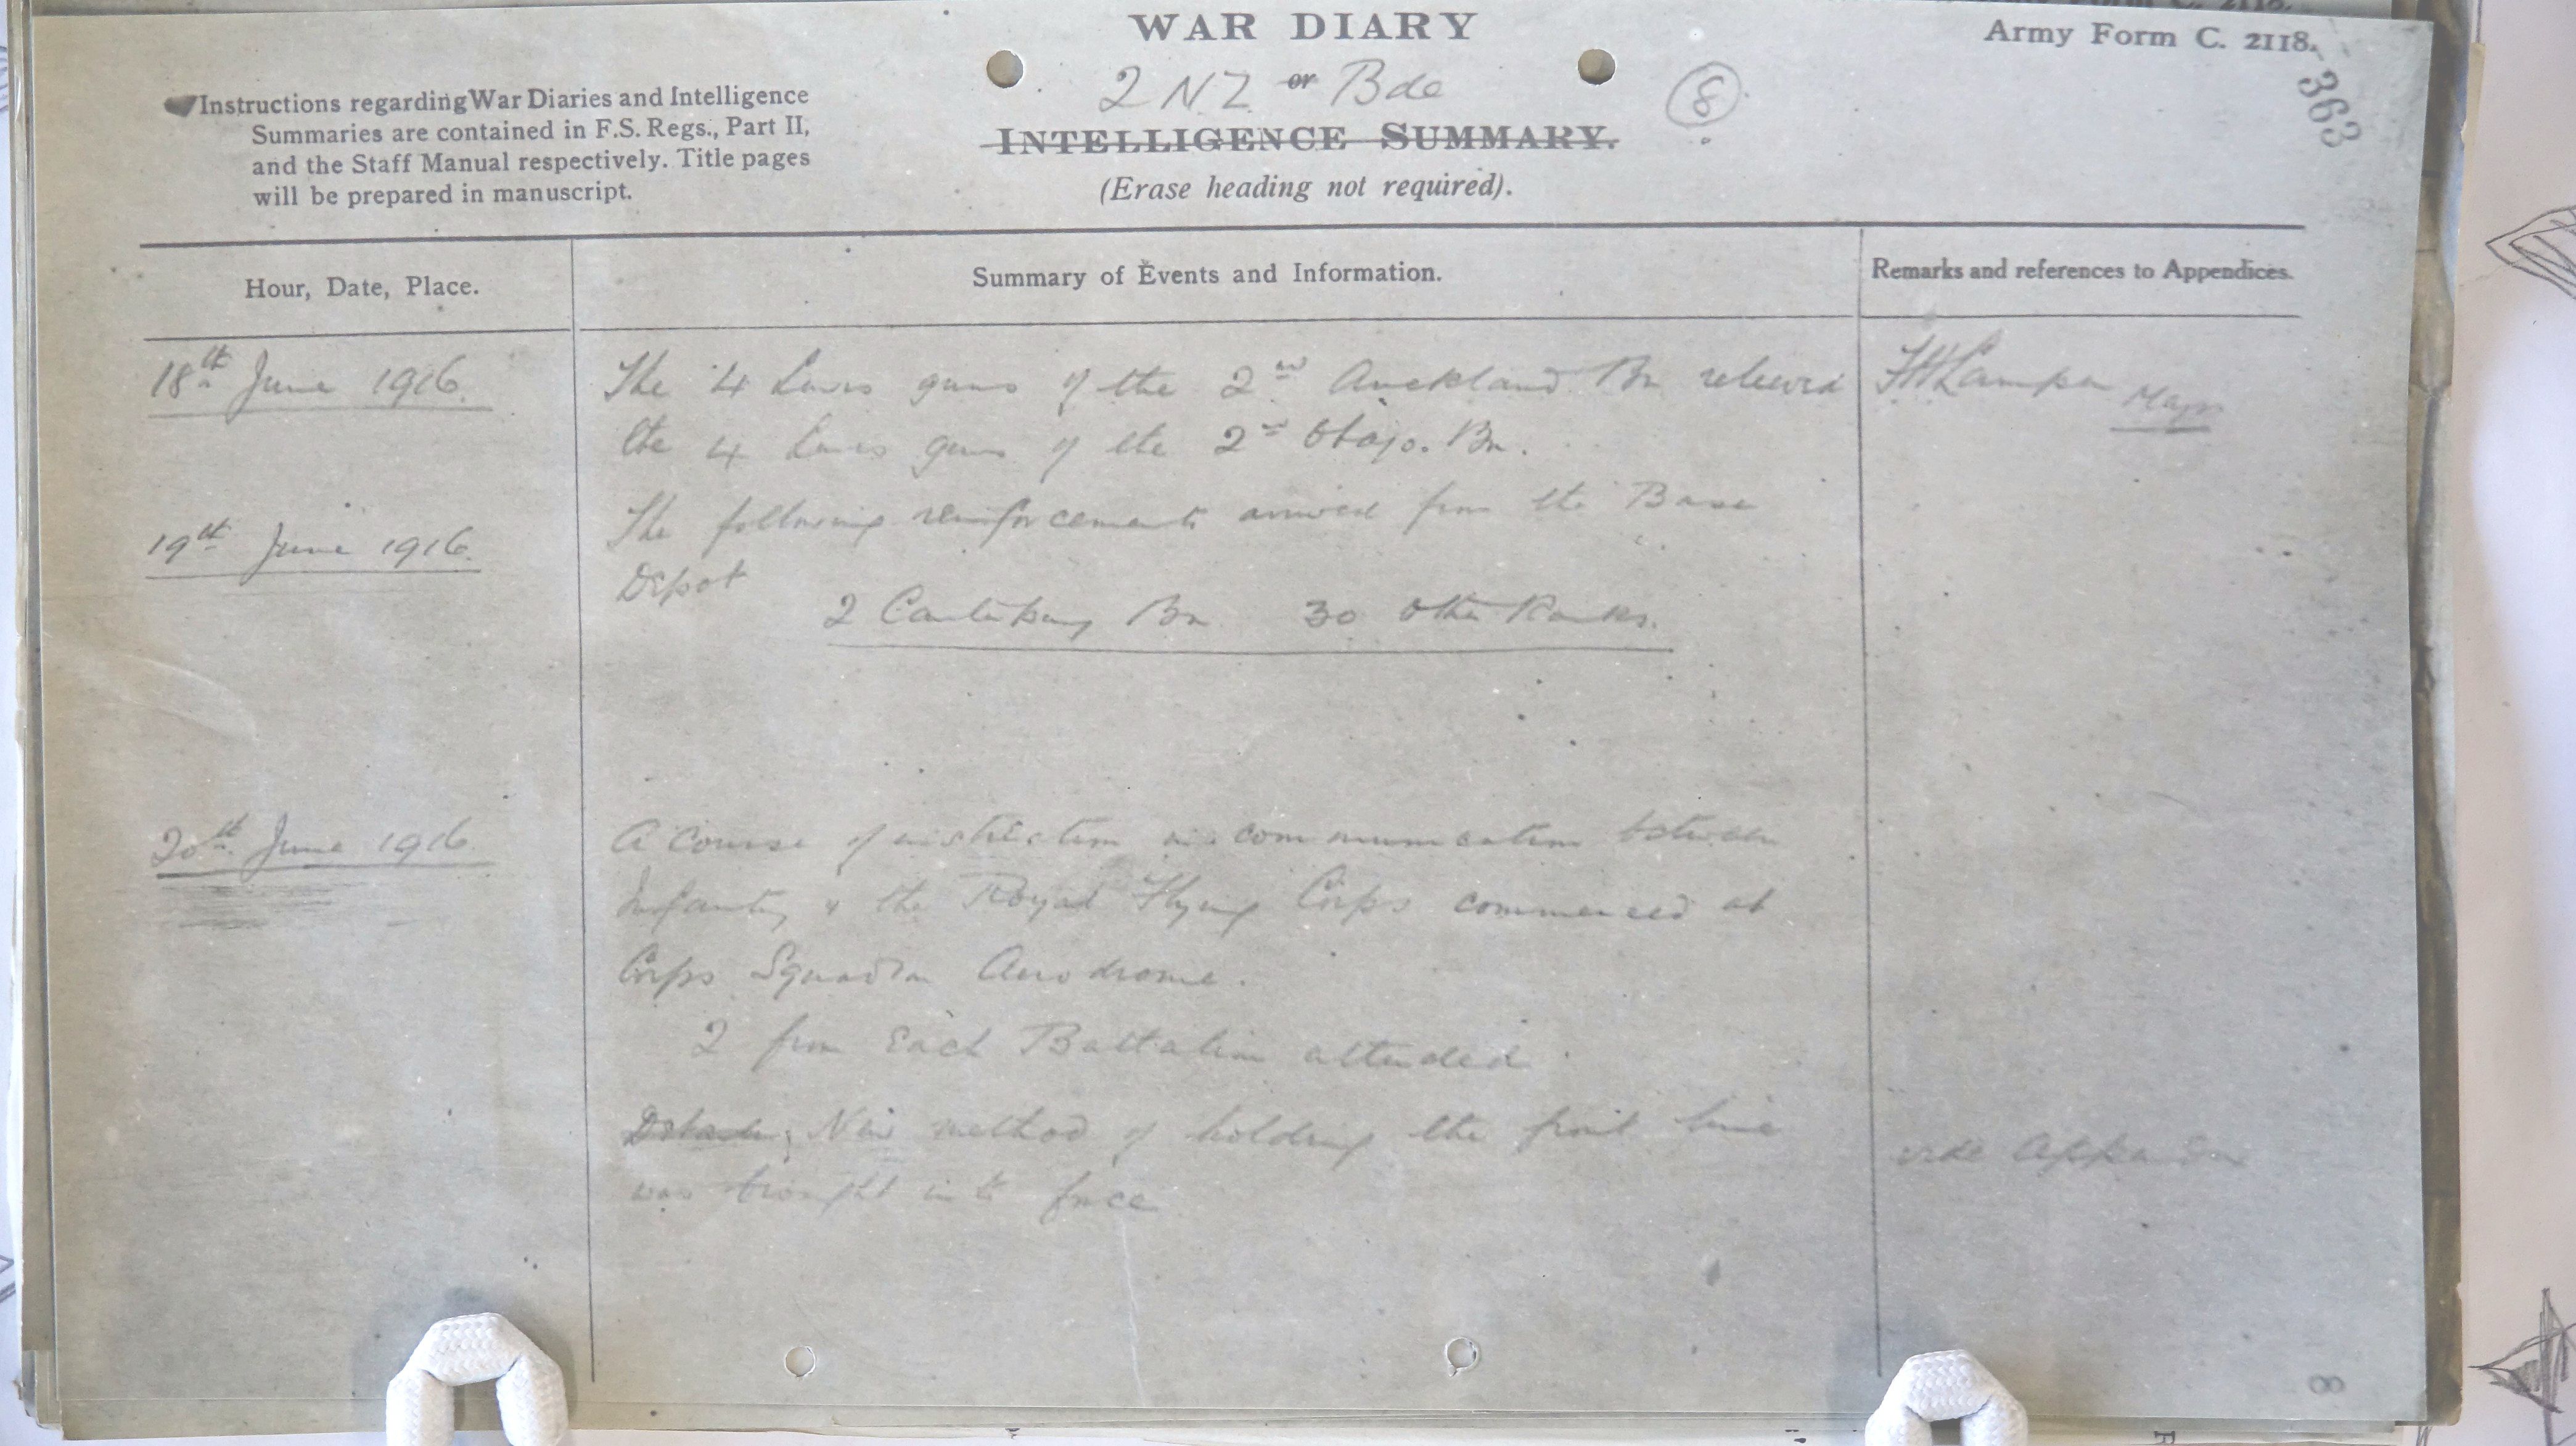 WAR DIARY
Army Form C. 2118.
363
2 NZ or Bde
8
INTELLIGENCE SUMMARY.
(Erase heading not required).
Instructions regarding War Diaries and Intelligence
Summaries are contained in F.S. Regs., Part II,
and the Staff Manual respectively. Title pages
will be prepared in manuscript.
Hour, Date, Place.
Summary of Events and Information.
Remarks and references to Appendices.
18th June 1916.
The 4 Lewis guns of the 2nd Auckland Bn relieved
the 4 Lewis guns of the 2nd Otago. Bn.
FH Lampen Major
19th June 1916.
The following reinforcements arrived from the Base
Depot
2 Canterbury Bn 30 other Ranks.
20th June 1916.
A course of instruction in communication between
Infantry & the Royal Flying Corps commenced at
Corps Squadron Aerodrome.
2 from Each Battalion attended.
New method of holding the front line
was brought into force
vide Appendix
8